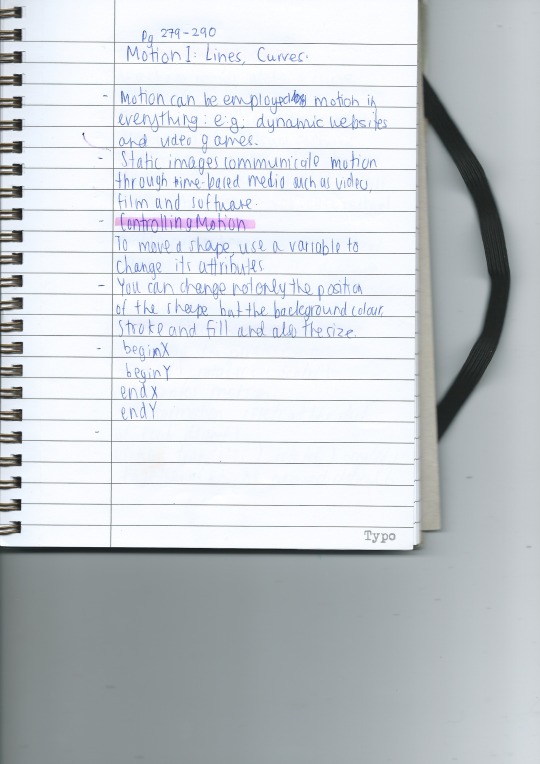 Pg 279-290
Motion I: Lines, Curves.
- Motion can be employed by motion in
everything: e.g; dynamic websites
and video games.
- Static images communicate motion
through time-based media such as video,
film and software.
- Controlling Motion
To move a shape, use a variable to
change its attributes
- You can change not only the position
of the shape but the background colour,
stroke and fill and also the size.
- beginX
beginY
endX
endY
-
Typo